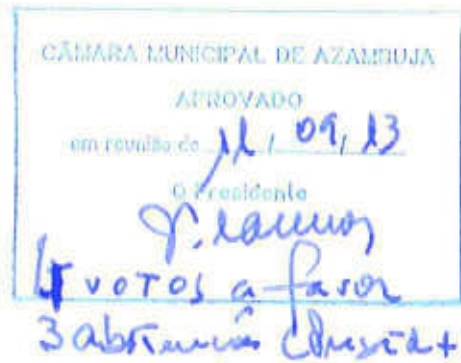 CÂMARA MUNICIPAL DE AZAMBUJA
APROVADO
em reunião de 11, 09, 13
O Presidente
votos a favor
3 abstenções